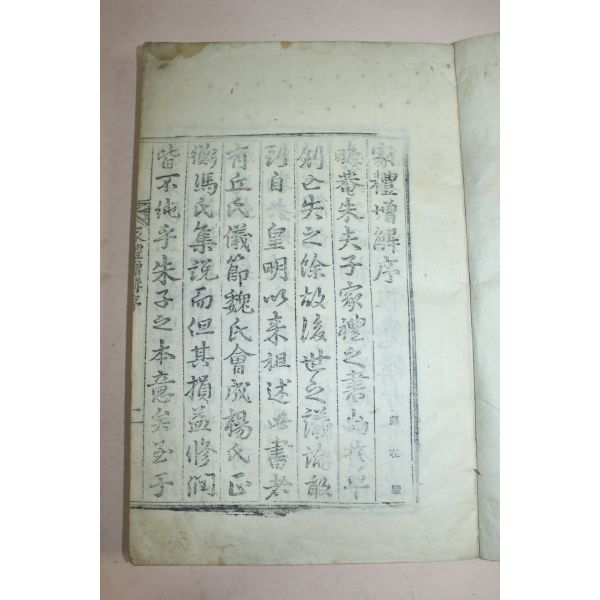 家禮增解序
晦菴朱夫子家禮之書出於早
創亡失之餘故後世之議論敢
到自皇明以來祖述此書者
有丘氏儀節魏氏會成楊氏正
衡馮氏集說而但其損益修潤
皆不純乎朱子之本意矣至于
家禮增解序